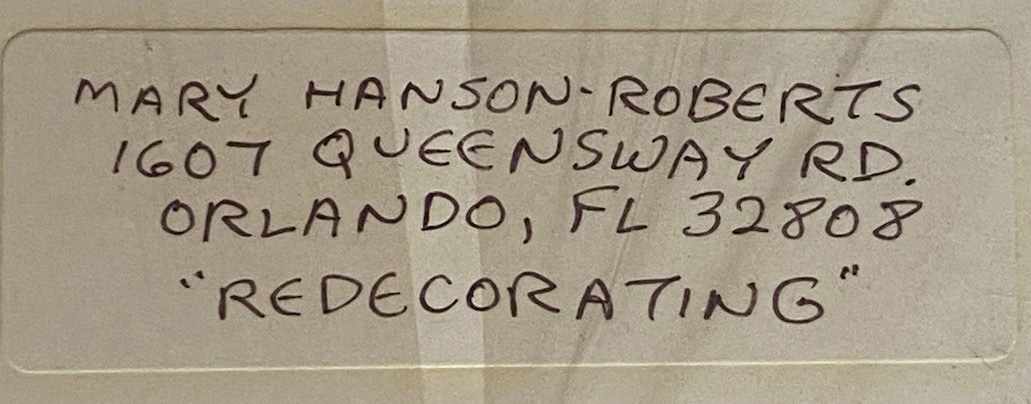 MARY HANSON-ROBERTS
1607 QUEENSWAY RD.
ORLANDO, FL 32808
"REDECORATING"